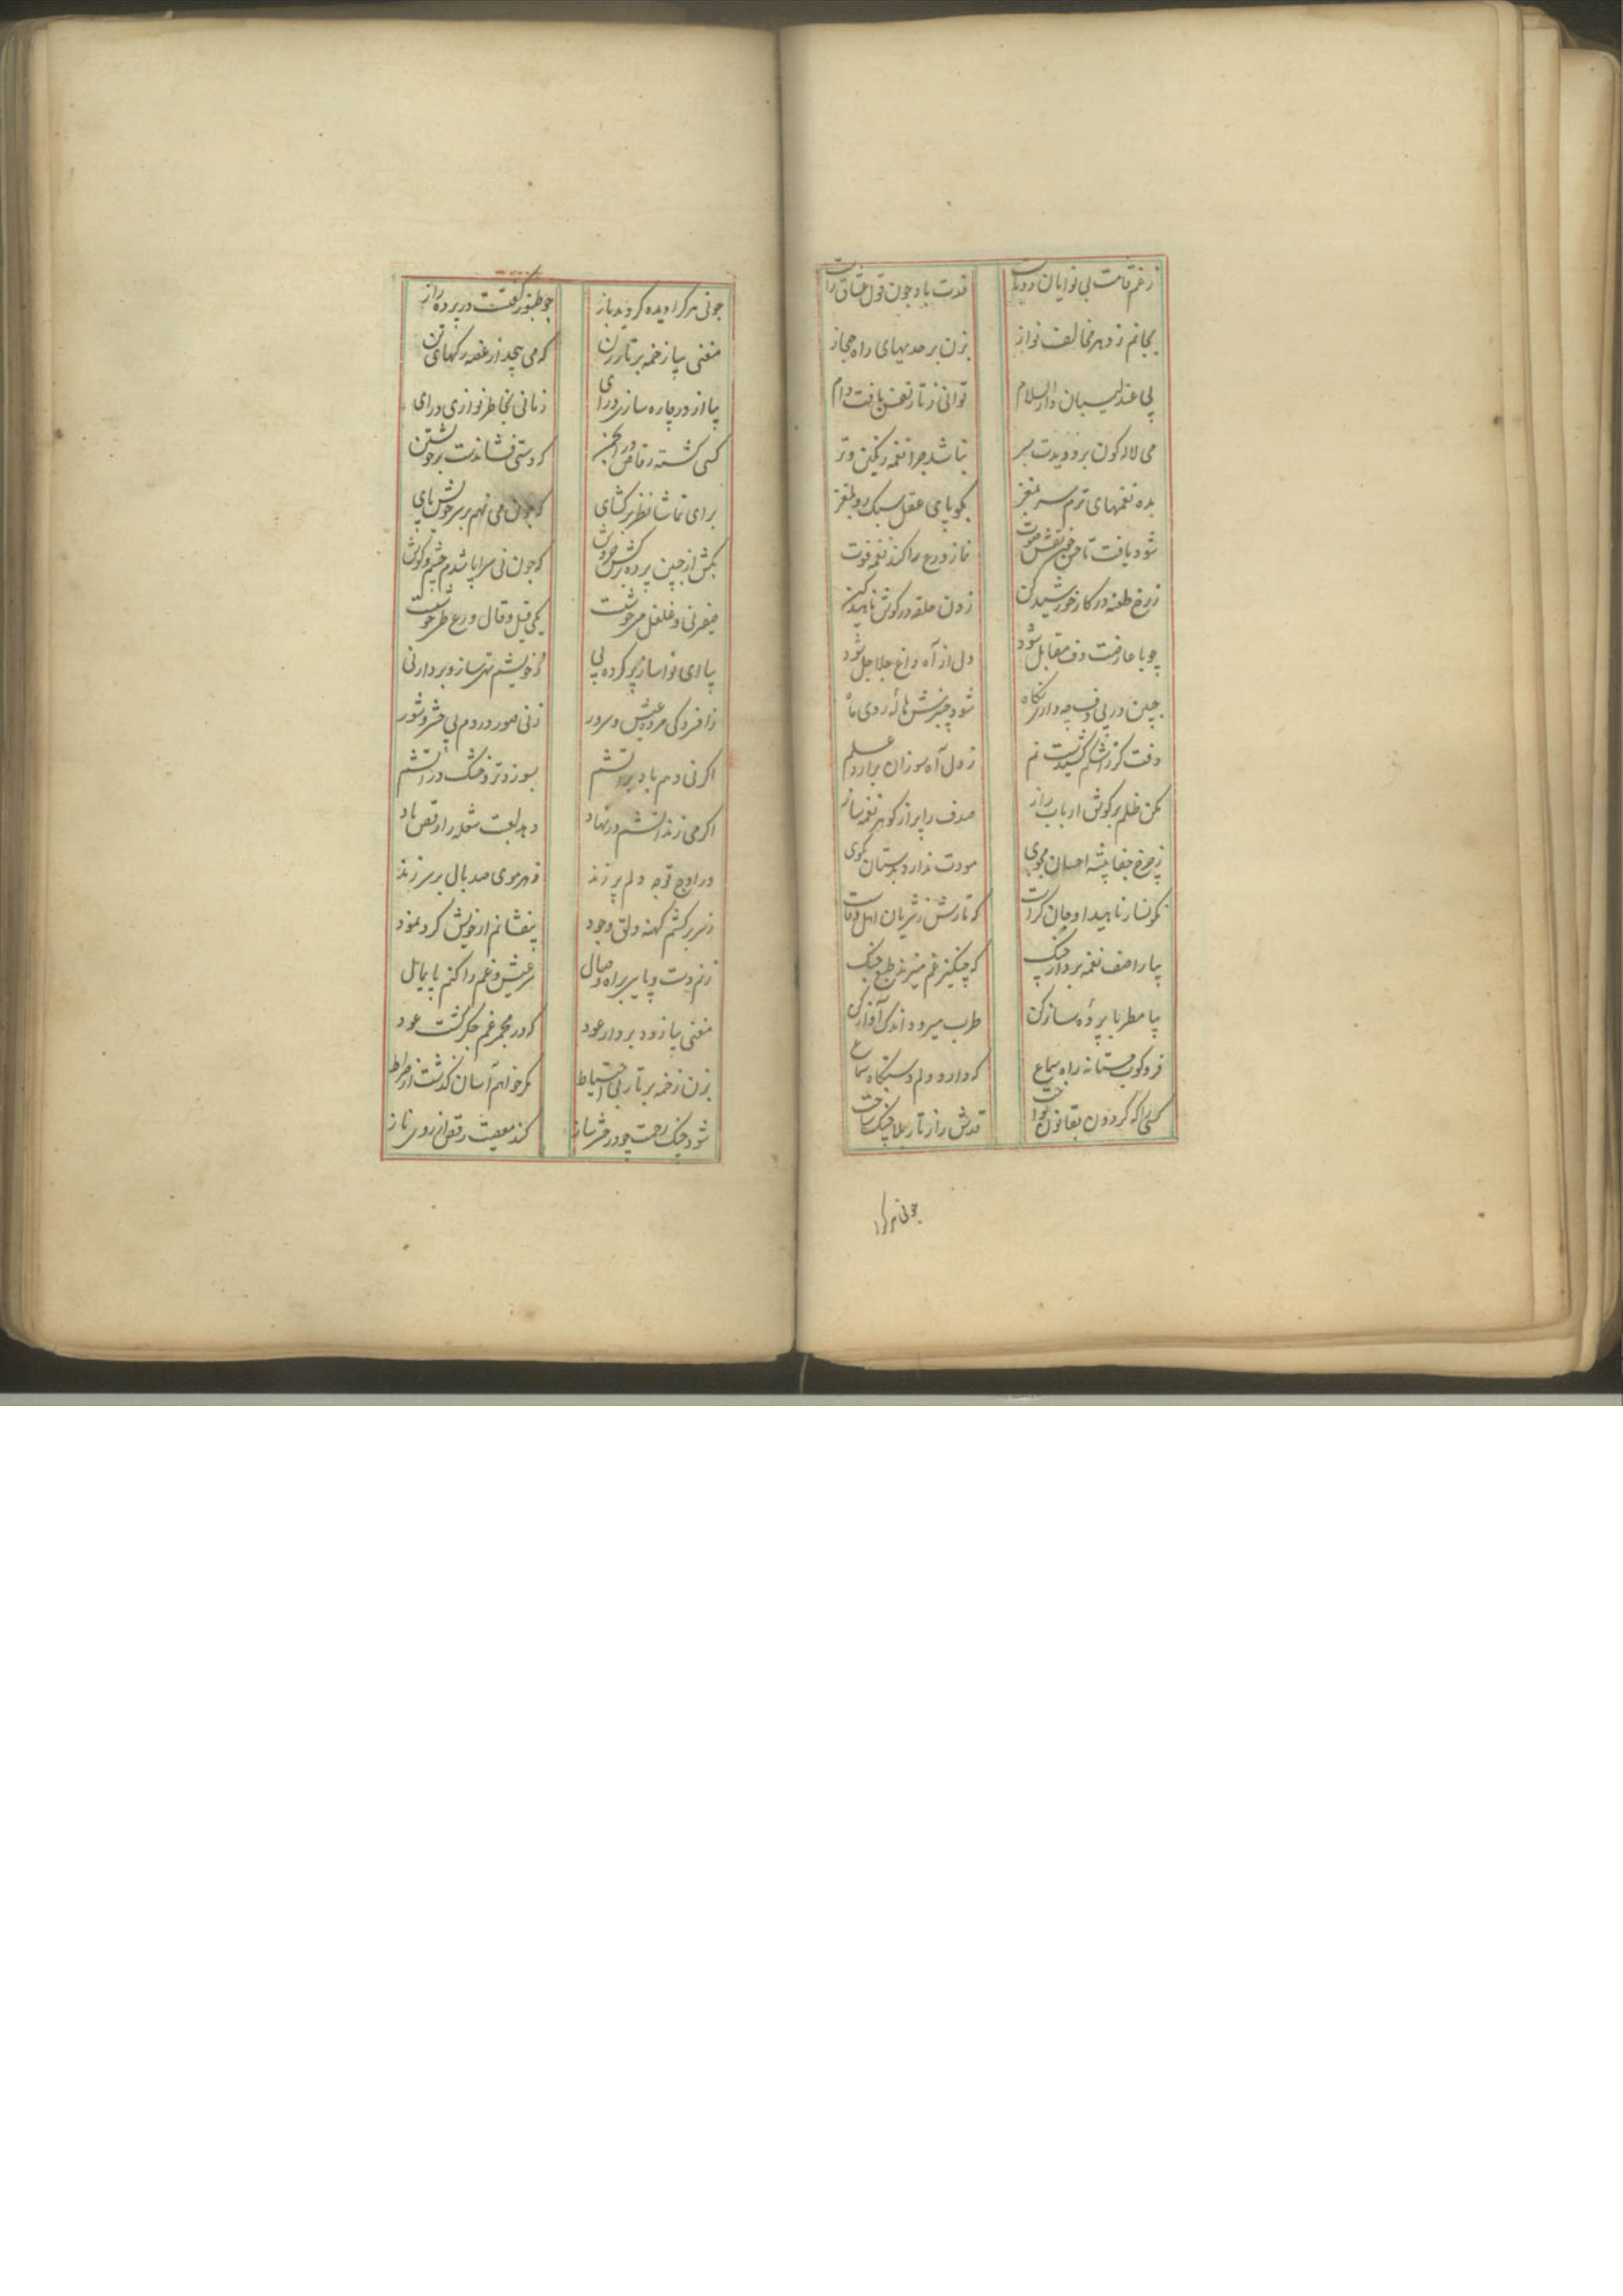 زغم قامت بی نوایان دوتاست قدت باد چون قول عشاق راست
بجانم ز دهر مخالف نواز بزن بر حدیهای راه حجاز
پی عندلیبان دارالسلام توانی ز تار نفس بافت دام
می لاله کون بر دویدت بسر نباشد چرا نغمه رنگین و تر
بده نغمهای ترم سر بمغز بکو پای عقل سبک رو بلغز
شود یافت تا حسن نقش صوت نماز ورع را کند نغمه فوت
زرخ طعنه در کار خورشید کن ز دف حلقه در کوش ناهید کن
چو با عارضت دف مقابل شود دل از آه داغ جلاجل شود
ببین در پی دف چه داری نکاه شود چنبرش هاله روی ماه
دفت کز اشکم کشیدست نم ز دل آه سوزان برارد علم
مکن ظلم بر کوش ارباب راز صدف را پر از کوهر نغمه ساز
ز چرخ جفا پیشه احسان مجوی مودت ندارد بدستان مکوی
نکونسار ناهید او جان کراست که تارش ز شریان اهل وفاست
بیا راصف نغمه بردار چنک که چنکیز غم میزند طبل جنک
بیا مطربا پرده ساز کن طرب میرود اندک آواز کن
فرو کوب مستانه راه سماع که دارد دلم دستکاه سماع
کسی را که کردون بقانون نواخت قدش را ز تار بلا چنک ساخت
چونی هر کرا
چونی هر کرا دیده کردید باز چو طنبور کفتت در پرده راز
مغنی بیا زخمه بر تار زن که می پیچد از غصه رکهای تن
بیا از در چاره سازی درای زمانی بخاطر نوازی درای
کسی کشته رقاص در انجمن که دستی فشاندست بر خویشتن
برای تماشا نظر برکشای که چون می نهم بر سر خویش پای
بکش از جبین پرده برکش خروش که چون نی سراپا شدم چشم و کوش
صفیر نی و غلغل می خوشست یکی قیل و قال ورع طی خوشست
بیا ای نوا ساز پر کرده پی ز خویشم تهی ساز و بردار نی
ز افسردکی مرده عیش و سرور ز نی صور در دم پی حشر و نشور
اکر نی دهم باد بر آتشم بسوزد تر و خشک در آتشم
اکر می زند آتشم در نهاد دهد لعبت شعله را رقص باد
در اوج توجه دلم پر زند ز هر موی صد بال بر سر زند
ز سر برکشم کهنه دلق وجود بیفشانم از خویش کرد نمود
زنم دست و پا بر براه وصال سر عیش و غم را کنم پایمال
مغنی بیا زود بردار عود که در مجمر غم جکر کشت عود
بزن زخمه بر تار بی احتیاط مکر خواهم آسان کذشت از صراط
شود چنک رحمت چو در حشر ساز کند معصیت رقص از روی ناز